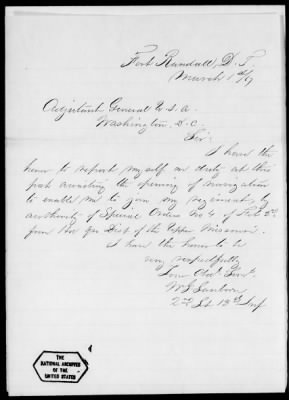 Fort Randall, D.T.
March 1st/67
Adjutant General U.S.A.
Washington, D.C.
Sir:
I have the
honor to report myself on duty at this
post awaiting the opening of navigation
to enable me to join my regiment, by
authority of Special Orders No 4 of Feb 5th
from Hd Qrs Dist of the Upper Missouri.
I have the honor to be
very respectfully
Your Obdt Servt
W. J. Sanborn
2nd Lt 13th Inf
THE
NATIONAL ARCHIVES
OF THE
UNITED STATES